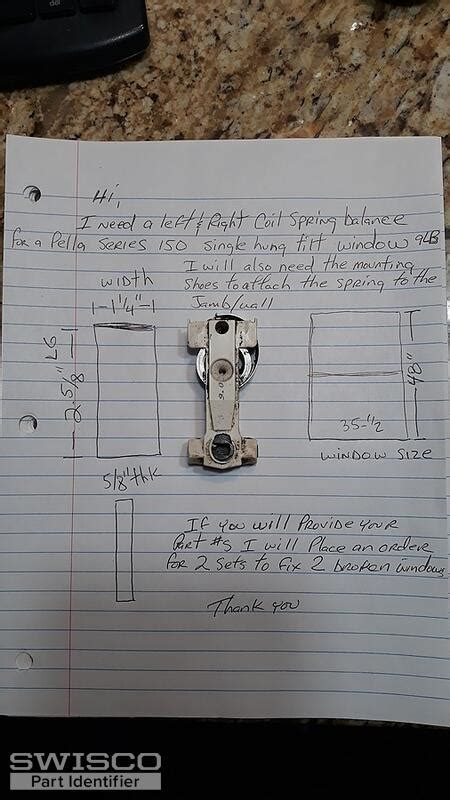 Hi,
I need a left & Right Coil Spring balance
for a Pella Series 150 single hung tilt window 9LB
I will also need the mounting
shoes to attach the spring to the
Jamb/wall
width
1-1¼"-1
2 5/8" LG
9.0
48"
35-1/2
window size
5/8" thk
If you will Provide your
Part #s I will Place an order
for 2 sets to fix 2 broken windows
Thank you
SWISCO
Part Identifier